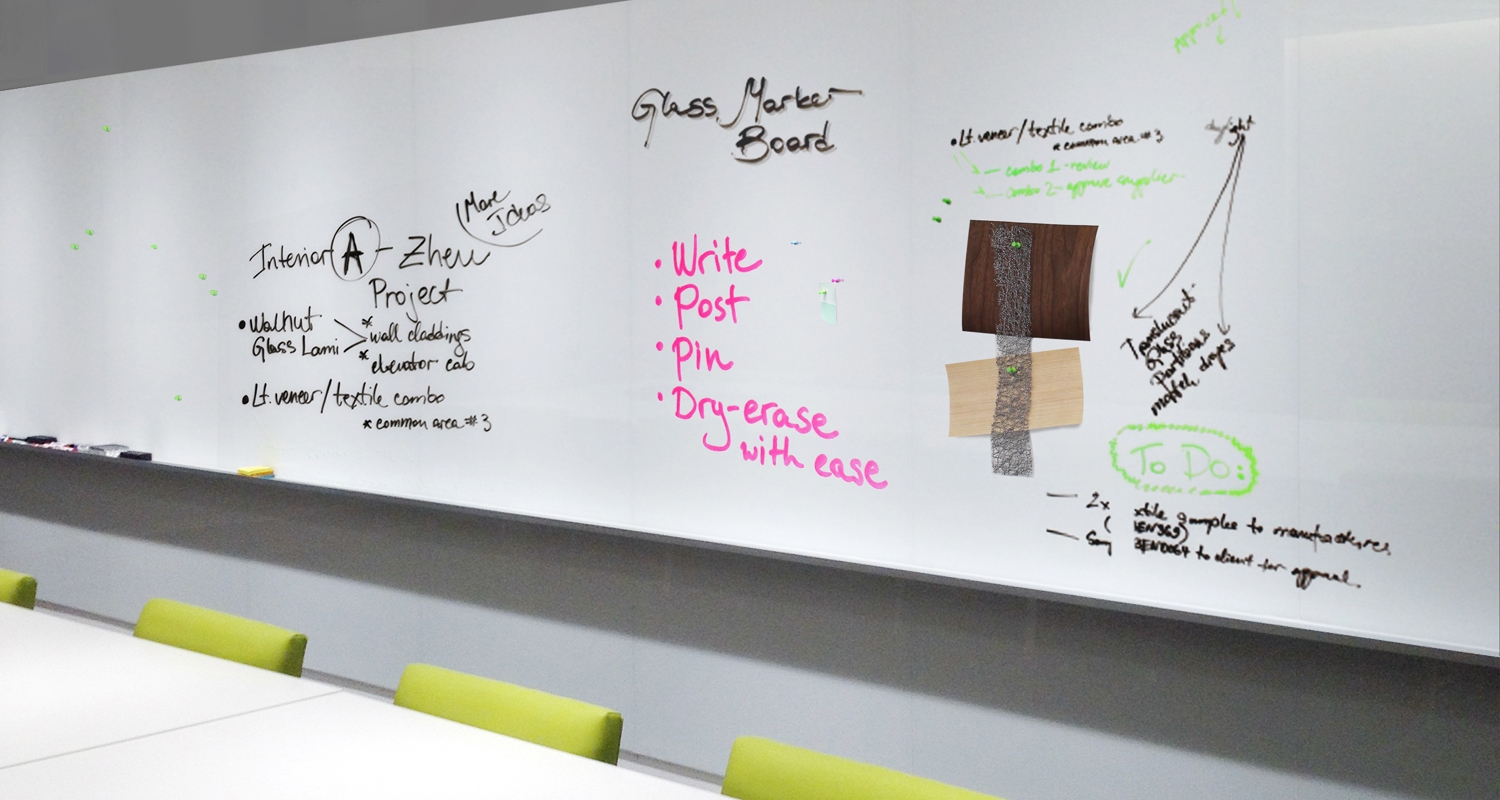 Glass Marker
Board
More
Ideas
Interior A - Zheu
Project
• Walnut
Glass Lami
* wall claddings
* elevator cab
• Lt. veneer/textile combo
* common area #3
• Write
• Post
• Pin
• Dry-erase
with ease
• Lt. veneer/textile combo
* common area #3
combo 1 - review
combo 2 - approve
Glass
Partitions
match drapes
To Do:
— 2x xtile samples to manufactures
— to client for approval.